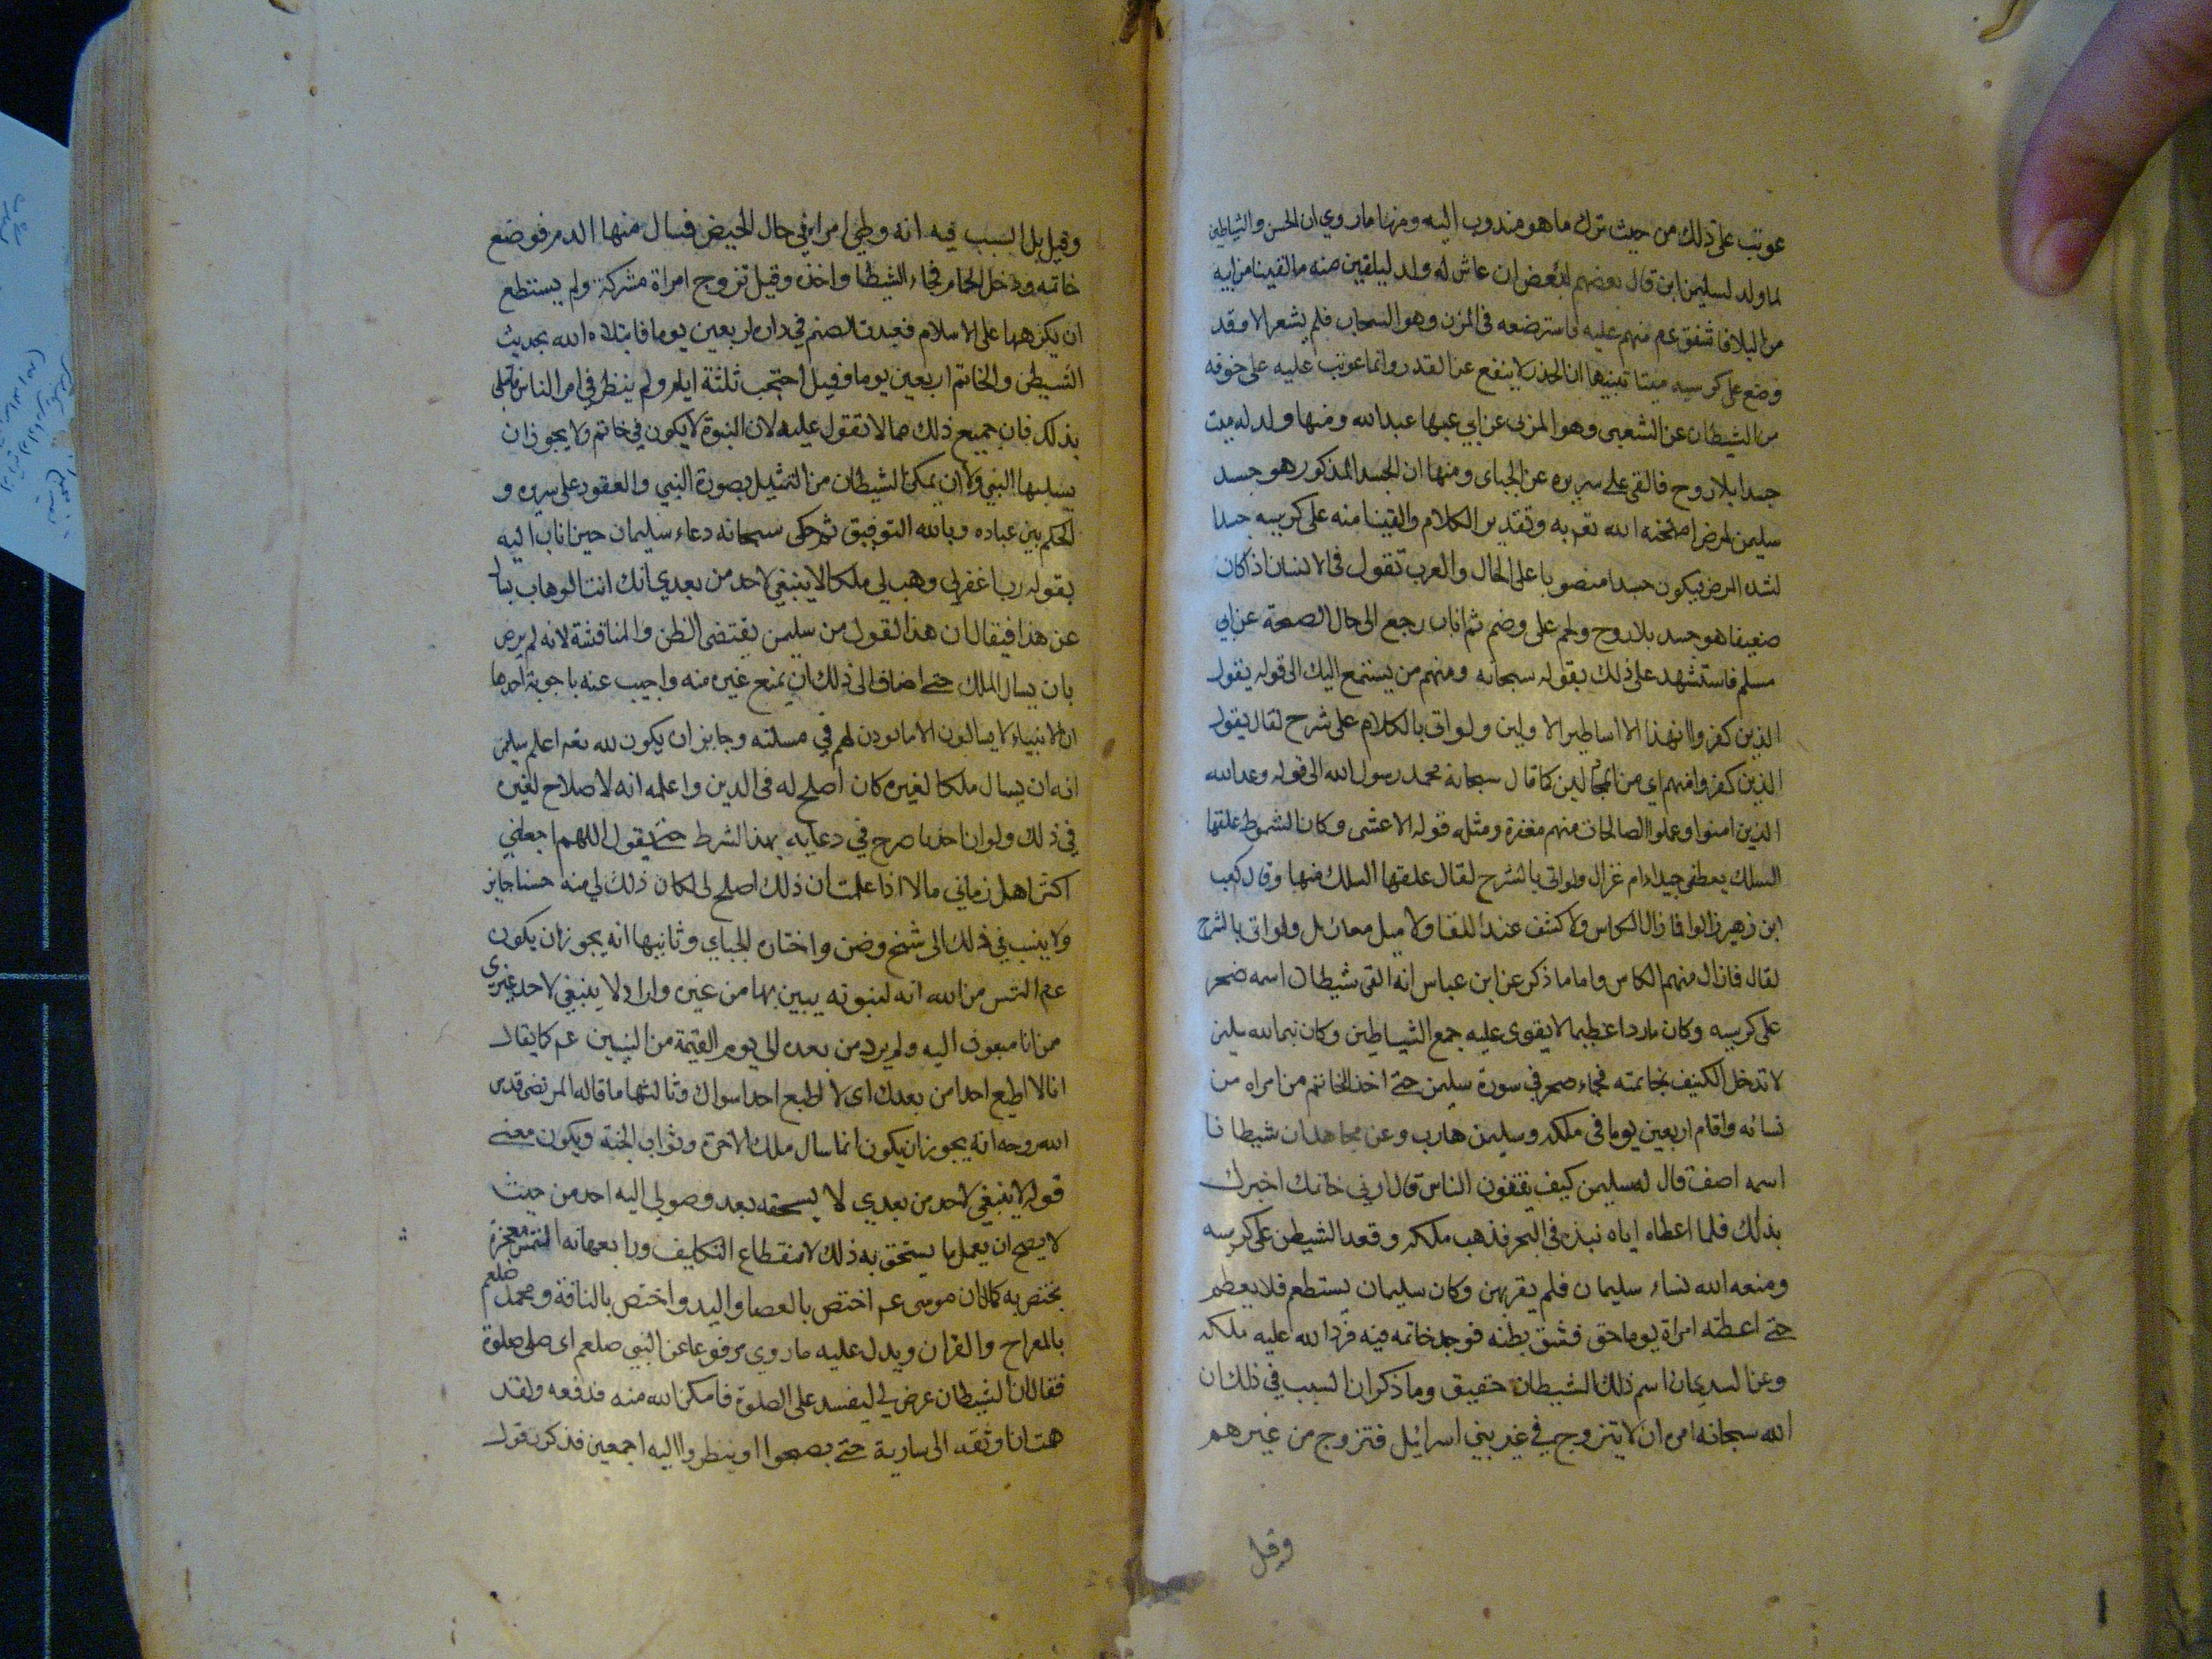 عوتب على ذلك من حيث ترك ما هو مندوب اليه ومنها ما روي ان الجن والشياطين
لما ولد لسليمن ابن قال بعضهم لبعض ان عاش له ولد ليلقين منه ما لقينا من ابيه
من البلا فاشفق عم منهم عليه فاسترضعه في المزن وهو السحاب فلم يشعر الا وقد
وضع على كرسيه ميتا تنبيها ان الحذر لا ينفع عن القدر وانما عوتب عليه على خوفه
من الشيطان عن الشعبى وهو المزنى عن ابي عبدالله ومنها ولد له ميت
جسدا بلا روح فالقى على سريره عن الجباى ومنها ان الجسد المذكور هو جسد
سليمن لمرض امتحنه الله تعم به وتقدير الكلام والقينا منه على كرسيه جسدا
لشده المرض فيكون جسدا منصوبا على الحال والعرب تقول في الانسان اذا كان
ضعيفا هو جسد بلا روح ولحم على وضم ثم اناب رجع الى حال الصحة عن ابي
مسلم فاستشهد على ذلك بقوله سبحانه ومنهم من يستمع اليك الى قوله يقول
الذين كفروا ان هذا الا اساطير الاولين ولو اتى بالكلام على شرح لقال يقول
الذين كفروا منهم اي من المجادلين كما قال سبحانه محمد رسول الله الى قوله وعد الله
الذين امنوا وعملوا الصالحات منهم مغفرة ومثله قوله الاعشى وكان الشموط علقها
السلك بعطفى جيداء ام غزال ولو اتى بالشرح لقال علقها السلك منها وقال كعب
ابن زهير زالوا فما زال انكاس ولا كشف عند اللقا ولا ميل معازيل ولو اتى بالشرح
لقال فما زال منهم انكاس واما ما ذكر عن ابن عباس انه القى شيطان اسمه صخر
على كرسيه وكان ماردا عظيما لا يقوى عليه جمع الشياطين وكان نبي الله سليمن
لا تدخل الكنيف بخاتمته فجاء صخر في سورة سليمن حتى اخذ الخاتم من امراه من
نسائه واقام اربعين يوما فى ملكه وسليمن هارب وعن مجاهد ان شيطانا
اسمه اصف قال له سليمن كيف يفتنون الناس قال ارني خاتمك اخبرك
بذلك فلما اعطاه اياه نبذه فى البحر فذهب ملكه وقعد الشيطن على كرسيه
ومنعه الله نساء سليمان فلم يقربهن وكان سليمان يستطعم فلا يعطم
حتى اعطته امراة يوما حوت فشق بطنه فوجد خاتمه فيه فرد الله عليه ملكه
وعن السدي ان اسم ذلك الشيطان حقيق وما ذكر ان السبب في ذلك ان
الله سبحانه امره ان لا يتزوج في غير بني اسرائل فتزوج من غيرهم
وقيل
وقيل بل السبب فيه انه وطئ امراة في حال الحيض فسال منها الدم فوضع
خاتمه ودخل الحمام فجاء الشيطان واخذه وقيل تزوج امراة مشركة ولم يستطع
ان يكرهها على الاسلام فعبدت الصنم في داره اربعين يوما فابتلاه الله بحديث
الشيطن والخاتم اربعين يوما وقيل احتجب ثلثة ايام ولم ينظر في امر الناس فابتلى
بذلك فان جميع ذلك مما لا تقول عليه لان النبوة لا يكون في خاتم ولا يجوز ان
يسلبها النبي ولا ان يمكن الشيطان من التمثيل بصورة النبي والعقود على سريره و
الحكم بين عباده وبالله التوفيق ثم حكى سبحانه دعاء سليمان حين اناب اليه
بقوله رب اغفرلي وهب لي ملكا لا ينبغي لاحد من بعدي انك انت الوهاب يسال
عن هذا فيقال ان هذا القول من سليمن يقتضى الظن والمنافسة لانه لم يرض
بان يسال الملك حتى اضاف الى ذلك ان يمنع غيره منه واجيب عنه باجوبة احدها
ان الانبياء لا يسالون الا ما يوذن لهم في مسلته وجايز ان يكون لله تعم اعلم سليمن
انه ان يسال ملكا لغيره كان اصلح له فى الدين واعلمه انه لا صلاح لغيره
في ذلك ولو ان احدنا صرح في دعايه بهذا الشرط حتى يقول اللهم اجعلني
اكثر اهل زماني مالا اذا علمت ان ذلك اصلح لى لكان ذلك لي منه حسنا جايز
ولا ينسب في ذلك الى شح وضن واختاره الجباي وثانيها انه يجوز ان يكون
عم التمس من الله اية لنبوته يبين بها من غيره واراد لا ينبغي لاحد غيري
ممن انا مبعوث اليه ولم يرد من بعده الى يوم القيمة من النبيين عم كما يقال
انا لا اطيع احدا من بعدك اى لا اطيع احدا سواك وثالثها ما قاله المرتضى قدس
الله روحه انه يجوز ان يكون انما سال ملك الاخرة وثواب الجنة ويكون معنى
قوله لا ينبغي لاحد من بعدي لا يستحقه بعد وصولي اليه احد من حيث
لا يصح ان يعمل ما يستحق به ذلك لانقطاع التكليف ورابعها انه التمس معجزة
تختص به كما ان موسى عم اختص بالعصا واليد واختص بالناقة ومحمد صلعم
بالمعراج والقران ويدل عليه ما روي مرفوعا عن النبى صلعم اى صلى صلوة
فقال ان الشيطان عرض لي ليفسد على الصلوة فامكن الله منه فدفعه ولقد
همت ان اوثقه الى سارية حتى يصبحوا او ينظروا اليه اجمعين فذكرت قول